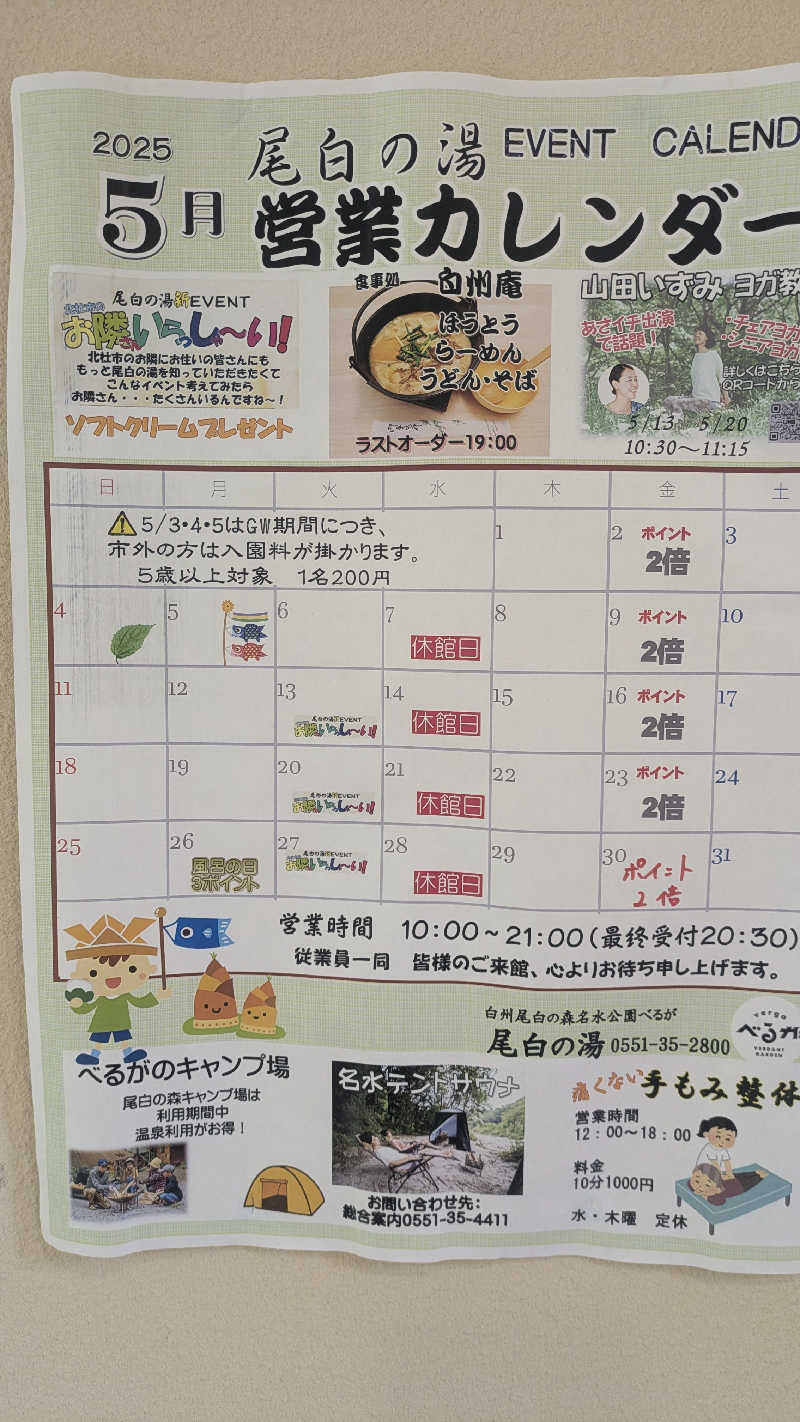 2025
5月
尾白の湯 EVENT CALEND
営業カレンダー
尾白の湯新EVENT
北杜市の
お隣さんいらっしゃ〜い!
北杜市のお隣にお住いの皆さんにも
もっと尾白の湯を知っていただきたくて
こんなイベント考えてみたら
お隣さん・・・たくさんいるんですね〜!
ソフトクリームプレゼント
食事処 白州庵
ほうとう
らーめん
うどん・そば
ラストオーダー19:00
山田いずみ ヨガ教
あさイチ出演
で話題!
・チェアヨガ
・シニアヨガ
詳しくはこちら
QRコードから
5/13 5/20
10:30〜11:15
日 月 火 水 木 金 土
⚠5/3・4・5はGW期間につき、
市外の方は入園料が掛かります。
5歳以上対象 1名200円
1
2 ポイント
2倍
3
4
5
6
7
休館日
8
9 ポイント
2倍
10
11
12
13
尾白の湯新EVENT
お隣さんいらっしゃ〜い!
14
休館日
15
16 ポイント
2倍
17
18
19
20
尾白の湯新EVENT
お隣さんいらっしゃ〜い!
21
休館日
22
23 ポイント
2倍
24
25
26
風呂の日
3ポイント
27
尾白の湯新EVENT
お隣さんいらっしゃ〜い!
28
休館日
29
30
ポイント
2倍
31
営業時間 10:00〜21:00(最終受付20:30)
従業員一同 皆様のご来館、心よりお待ち申し上げます。
白州尾白の森名水公園べるが
尾白の湯 0551-35-2800
verga
べるが
VERDANT
GARDEN
べるがのキャンプ場
尾白の森キャンプ場は
利用期間中
温泉利用がお得!
名水テントサウナ
お問い合わせ先:
総合案内0551-35-4411
痛くない 手もみ整体
営業時間
12:00〜18:00
料金
10分1000円
水・木曜 定休